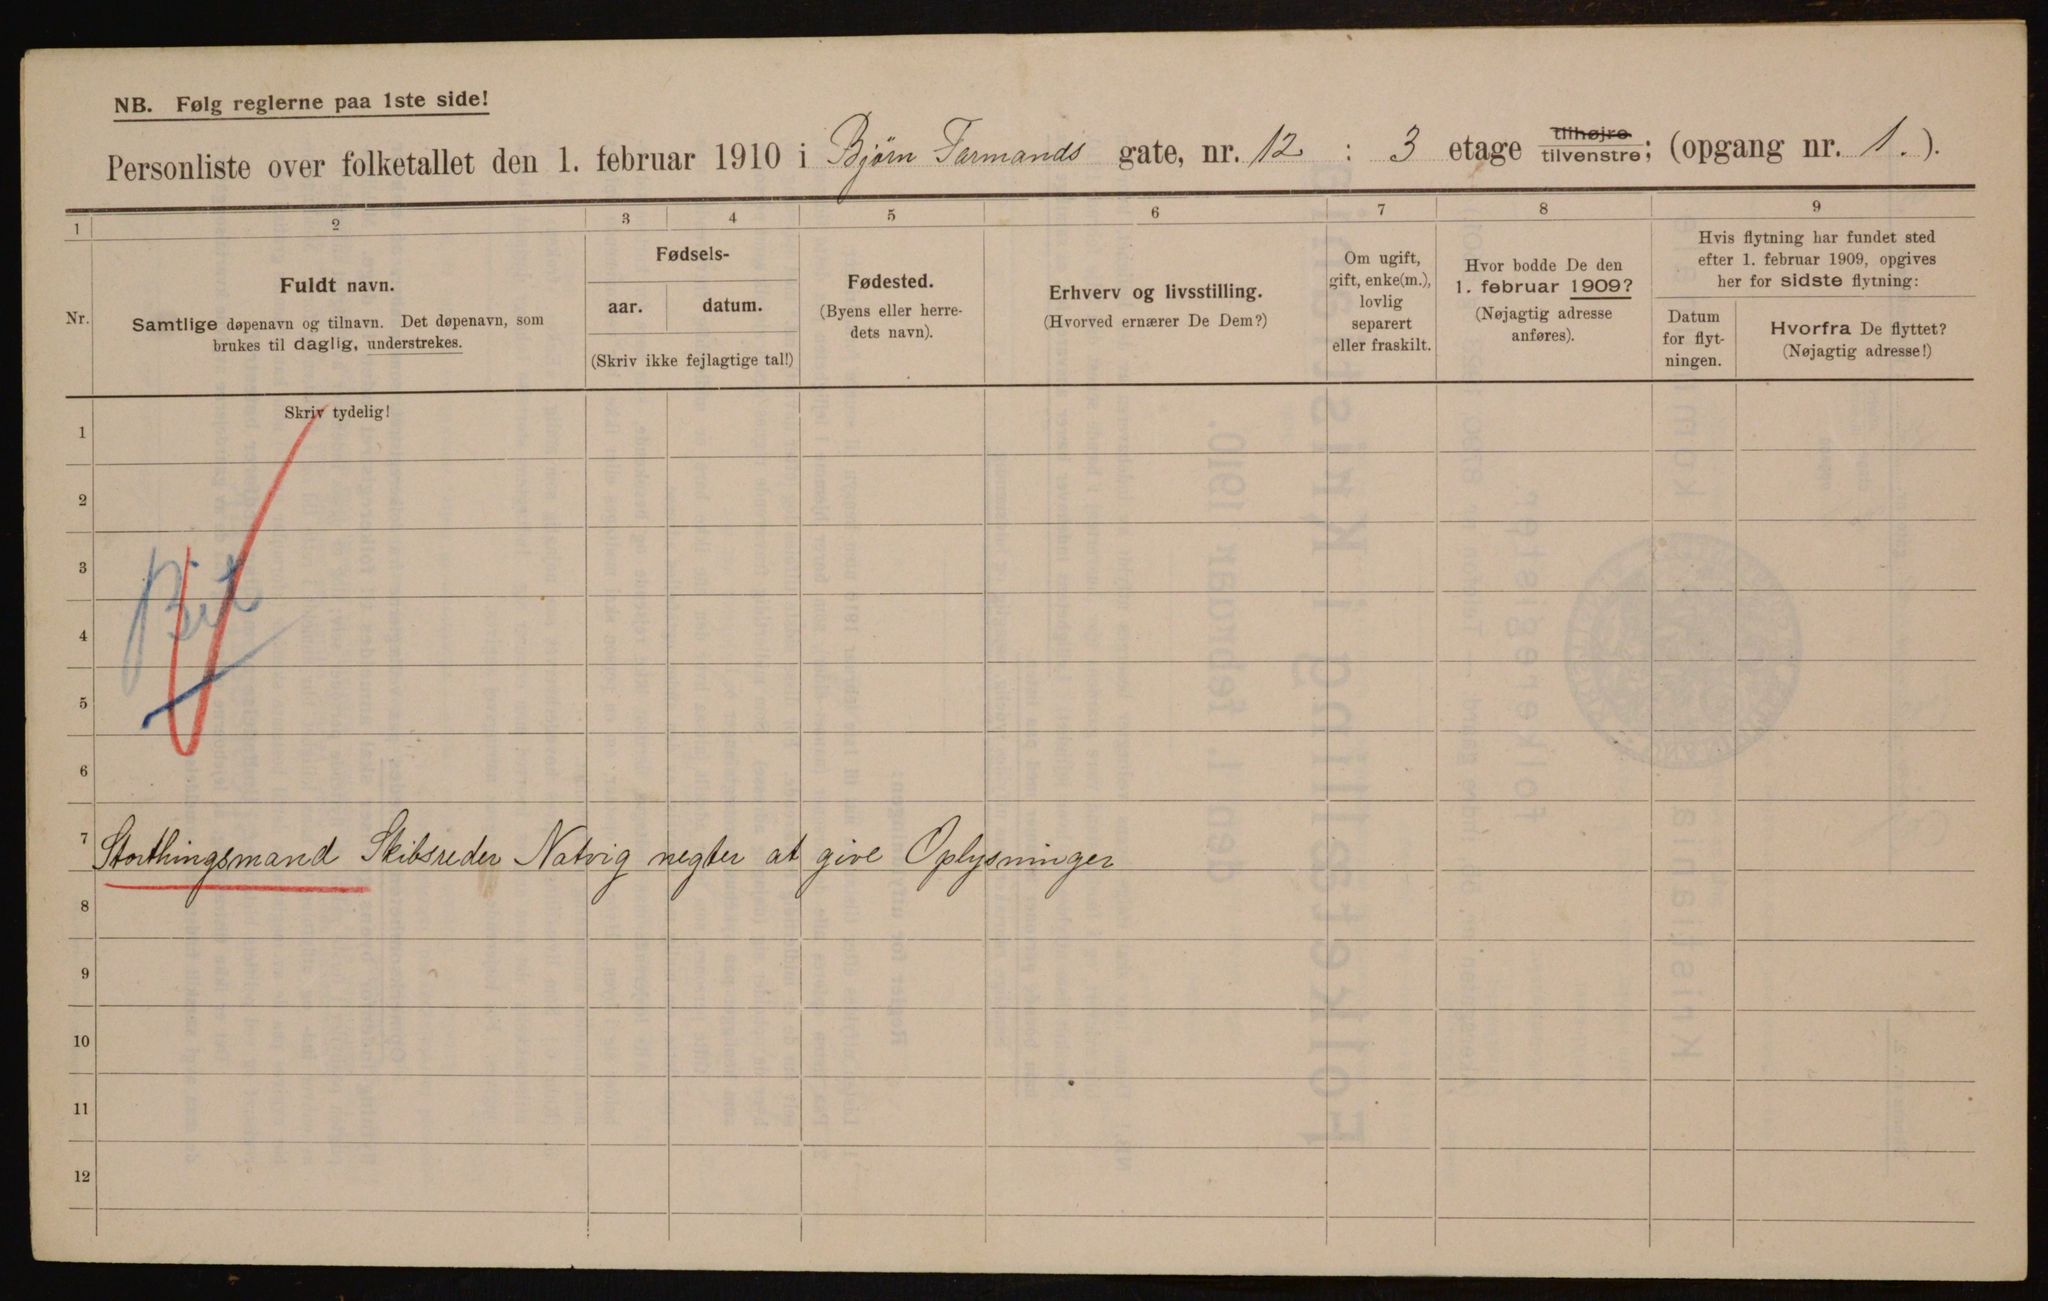 NB. Følg reglerne paa 1ste side!
Personliste over folketallet den 1. februar 1910 i Bjørn Farmands gate, nr. 12 : 3 etage tilhøjre tilvenstre; (opgang nr. 1.).
1 2 3 4 5 6 7 8 9
Nr.
Fuldt navn.
Samtlige døpenavn og tilnavn. Det døpenavn, som
brukes til daglig, understrekes.
Fødsels-
aar. datum.
(Skriv ikke fejlagtige tal!)
Fødested.
(Byens eller herre-
dets navn).
Erhverv og livsstilling.
(Hvorved ernærer De Dem?)
Om ugift,
gift, enke(m.),
lovlig
separert
eller fraskilt.
Hvor bodde De den
1. februar 1909?
(Nøjagtig adresse
anføres).
Hvis flytning har fundet sted
efter 1. februar 1909, opgives
her for sidste flytning:
Datum
for flyt-
ningen.
Hvorfra De flyttet?
(Nøjagtig adresse!)
Skriv tydelig!
1
2
3
4
5
6
7 Storthingsmand Skibsreder Natvig negter at give Oplysninger
8
9
10
11
12